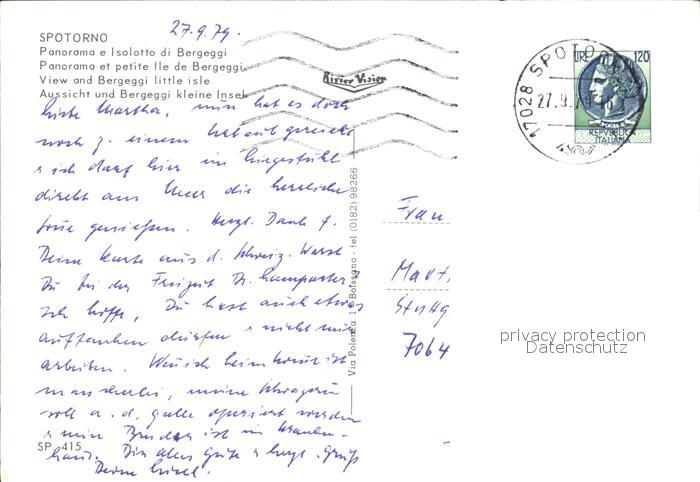 27.9.79.
SPOTORNO
Panorama e Isolotto di Bergeggi
Panorama et petite Ile de Bergeggi
View and Bergeggi little isle
Aussicht und Bergeggi kleine Insel
River Visier
17028 SPOTORNO
27.9.79
LIRE 120
REPVBBLICA
ITALIANA
Liebe Martha, nun hat es doch
noch z. einem Urlaub gereicht
u ich darf hier im Liegestuhl
direkt am Meer die herrliche
genießen. Herzl. Dank f.
Deine Karte aus d. Schweiz. Warst
Du bei der Freizeit Dr.
Ich hoffe, Du hast auch etwas
auftanken dürfen u nicht nur
arbeiten. Wenn ich heim komme ist
mancherlei, meine Schwägerin
soll a. d. Galle operiert werden
u mein Bruder ist im Kranken-
haus. Dir alles Gute u herzl. Grüße
Deine
Via Polenza 1 - Boissano - tel (0182) 98266
Frau
Mart
Stuttg
7064
privacy protection
Datenschutz
SP 415